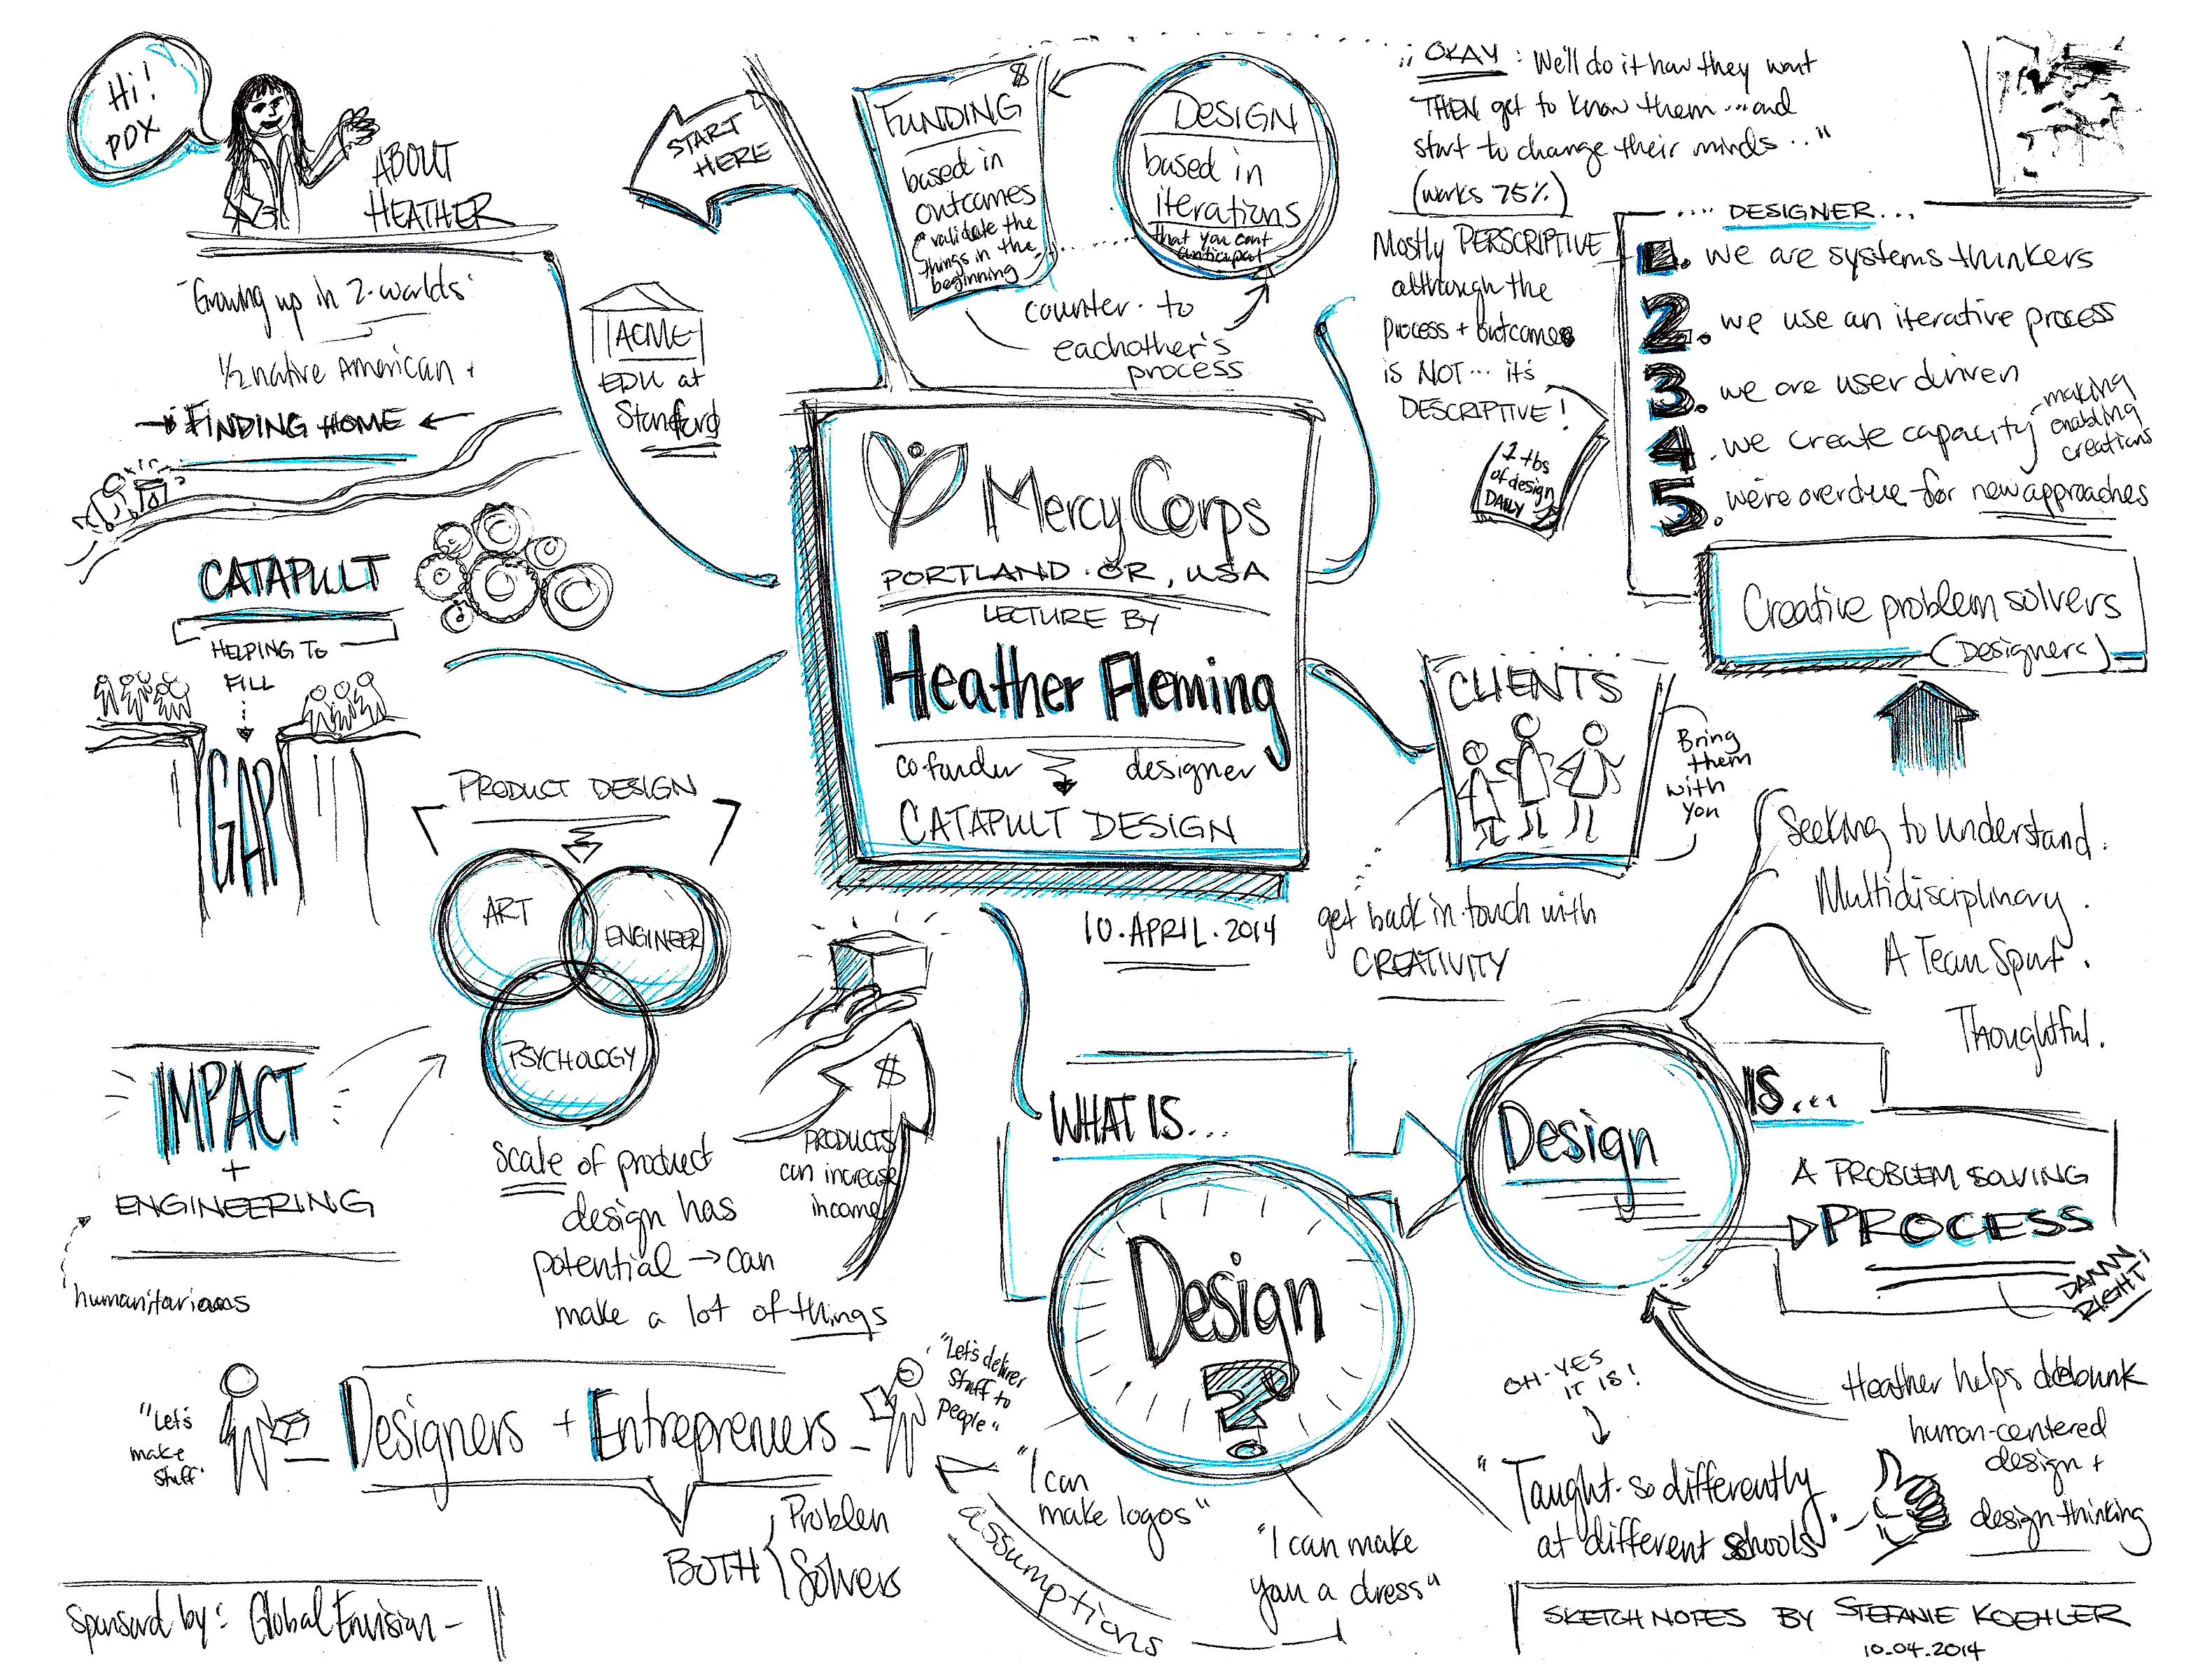 Hi!
PDX
ABOUT
HEATHER
"Growing up in 2-worlds"
1/2 native American +
FINDING HOME
ACME
EDU at
Stanford
START
HERE
$
FUNDING
based in
outcomes
validate the
things in the
beginning
DESIGN
based in
iterations
that you cant
anticipat
counter to
eachother's
process
OKAY: We'll do it how they want
THEN get to know them...and
start to change their minds..."
(works 75%)
Mostly PERSCRIPTIVE
although the
process + outcomes
is NOT... it's
DESCRIPTIVE!
2 tbs
of design
DAILY
.... DESIGNER...
1. we are systems thinkers
2. we use an iterative process
3. we are user driven
4. we create capacity
making
enabling
creations
5. we're overdue for new approaches
Creative problem solvers
(Designers)
Mercy Corps
PORTLAND.OR, USA
LECTURE BY
Heather Fleming
cofunder designer
CATAPULT DESIGN
10.APRIL.2014
CATAPULT
HELPING TO
FILL
GAP
CLIENTS
Bring
them
with
you
get back in touch with
CREATIVITY
PRODUCT DESIGN
ART
ENGINEER
PSYCHOLOGY
IMPACT
+
ENGINEERING
humanitarians
Scale of product
design has
potential → can
make a lot of things
$
PRODUCTS
can increase
income
Seeking to understand.
Multidisciplinary.
A Team Sport.
Thoughtful.
WHAT IS...
Design
?
Design
IS...
A PROBLEM SOLVING
PROCESS
DAMN
RIGHT!
Heather helps debunk
human-centered
design +
design thinking
OH-YES
IT IS!
"Taught so differently
at different schools"
"Let's
make
stuff"
Designers + Entrepreneurs
"Let's deliver
stuff to
people"
BOTH
Problem
Solvers
"I can
make logos"
"I can make
you a dress"
assumptions
Sponsord by: Global Envision
SKETCHNOTES BY STEFANIE KOEHLER
10.04.2014